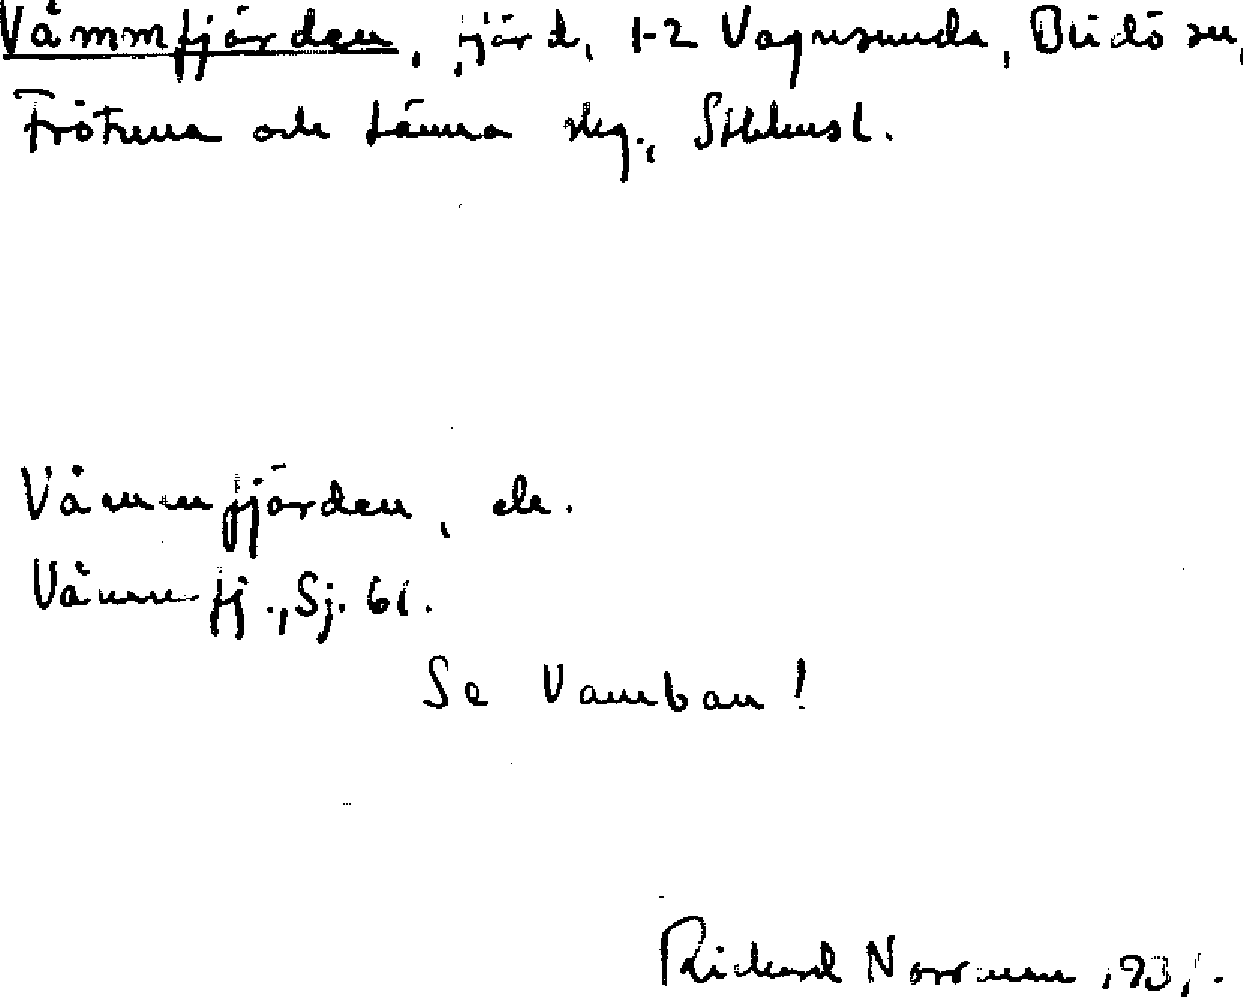 Våmmfjärden, fjärd, 1-2 Vagnsunda, Blidö sn,
Frötuna och Länna skg., Sthlmsl.
Våmmfjärden, ek.
Våmmfj., Sj. 61.
Se Vamban!
Rickard Norrman, 931.